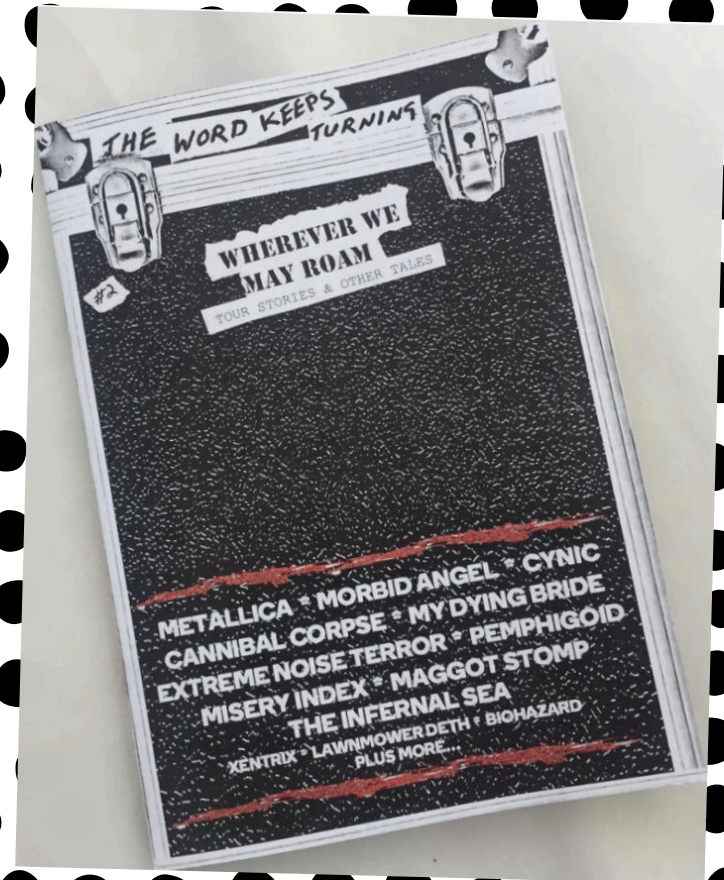 THE WORD KEEPS
TURNING
WHEREVER WE
MAY ROAM
TOUR STORIES & OTHER TALES
#2
METALLICA * MORBID ANGEL * CYNIC
CANNIBAL CORPSE * MY DYING BRIDE
EXTREME NOISE TERROR * PEMPHIGOID
MISERY INDEX * MAGGOT STOMP
THE INFERNAL SEA
XENTRIX * LAWNMOWER DETH * BIOHAZARD
PLUS MORE...